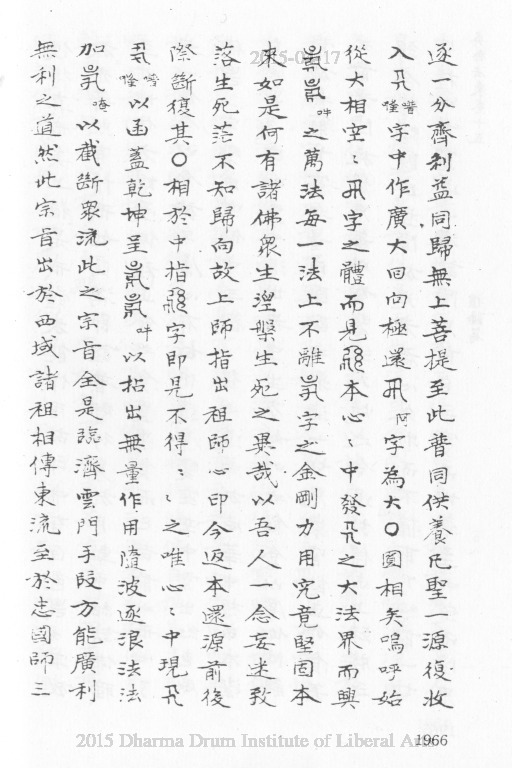 逐一分齊利益同歸無上菩提至此普同供養凡聖一源復收
入字中作廣大回向極還阿字為大〇圓相矣嗚呼始
從大相空﹔字之體而見本心﹔中發之大法界而興
吽之萬法每一法上不離字之金剛力用究竟堅固本
來如是何有諸佛眾生涅槃生死之異哉以吾人一念妄迷致
落生死茫不知歸向故上師指出祖師心印今返本還源前後
際斷復其〇相於中指字即見不得﹔﹔之唯心﹔中現
以函蓋乾坤呈吽以拈出無量作用隨波逐浪法法
加以截斷眾流此之宗旨全是臨濟雲門手段方能廣利
無利之道然此宗旨出於西域諸祖相傳東流至於忠國師三
1966
2015 Dharma Drum Institute of Liberal Arts